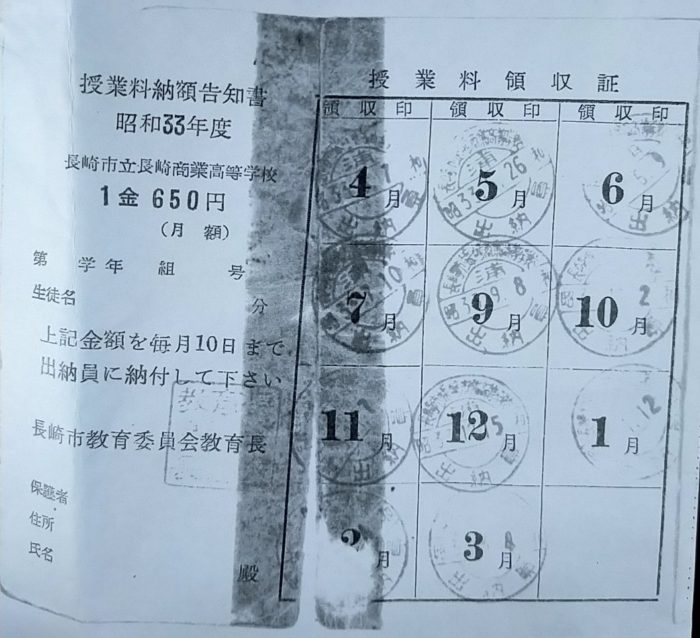 授業料納額告知書
昭和33年度
長崎市立長崎商業高等学校
1金 650円
(月 額)
第 学年 組 号
生徒名 分
上記金額を毎月10日まで
出納員に納付して下さい
長崎市教育委員会教育長
保護者
住所
氏名
殿
授業料領収証
領収印 領収印 領収印
4月 5月 6月
7月 9月 10月
11月 12月 1月
2月 3月